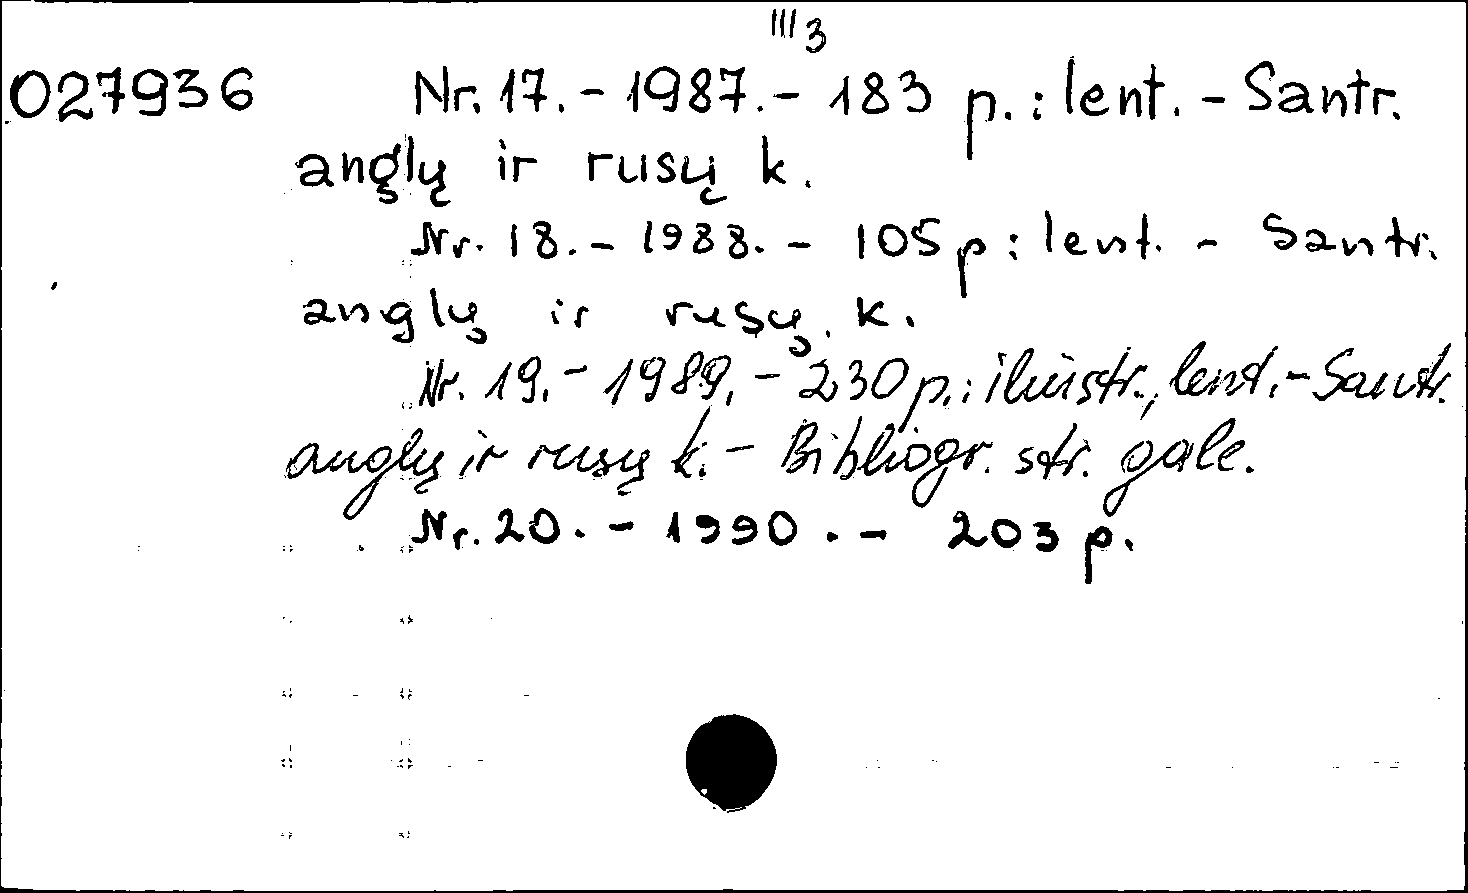 III 3
027936 Nr. 17. - 1987. - 183 p. : lent. - Santr.
anglų ir rusų k.
Nr. 18. - 1988. - 105 p : lent. - Santr.
anglų ir rusų k.
Nr. 19. - 1989. - 230 p. : iliustr., lent. - Santr.
anglų ir rusų k. - Bibliogr. str. gale.
Nr. 20. - 1990. - 203 p.